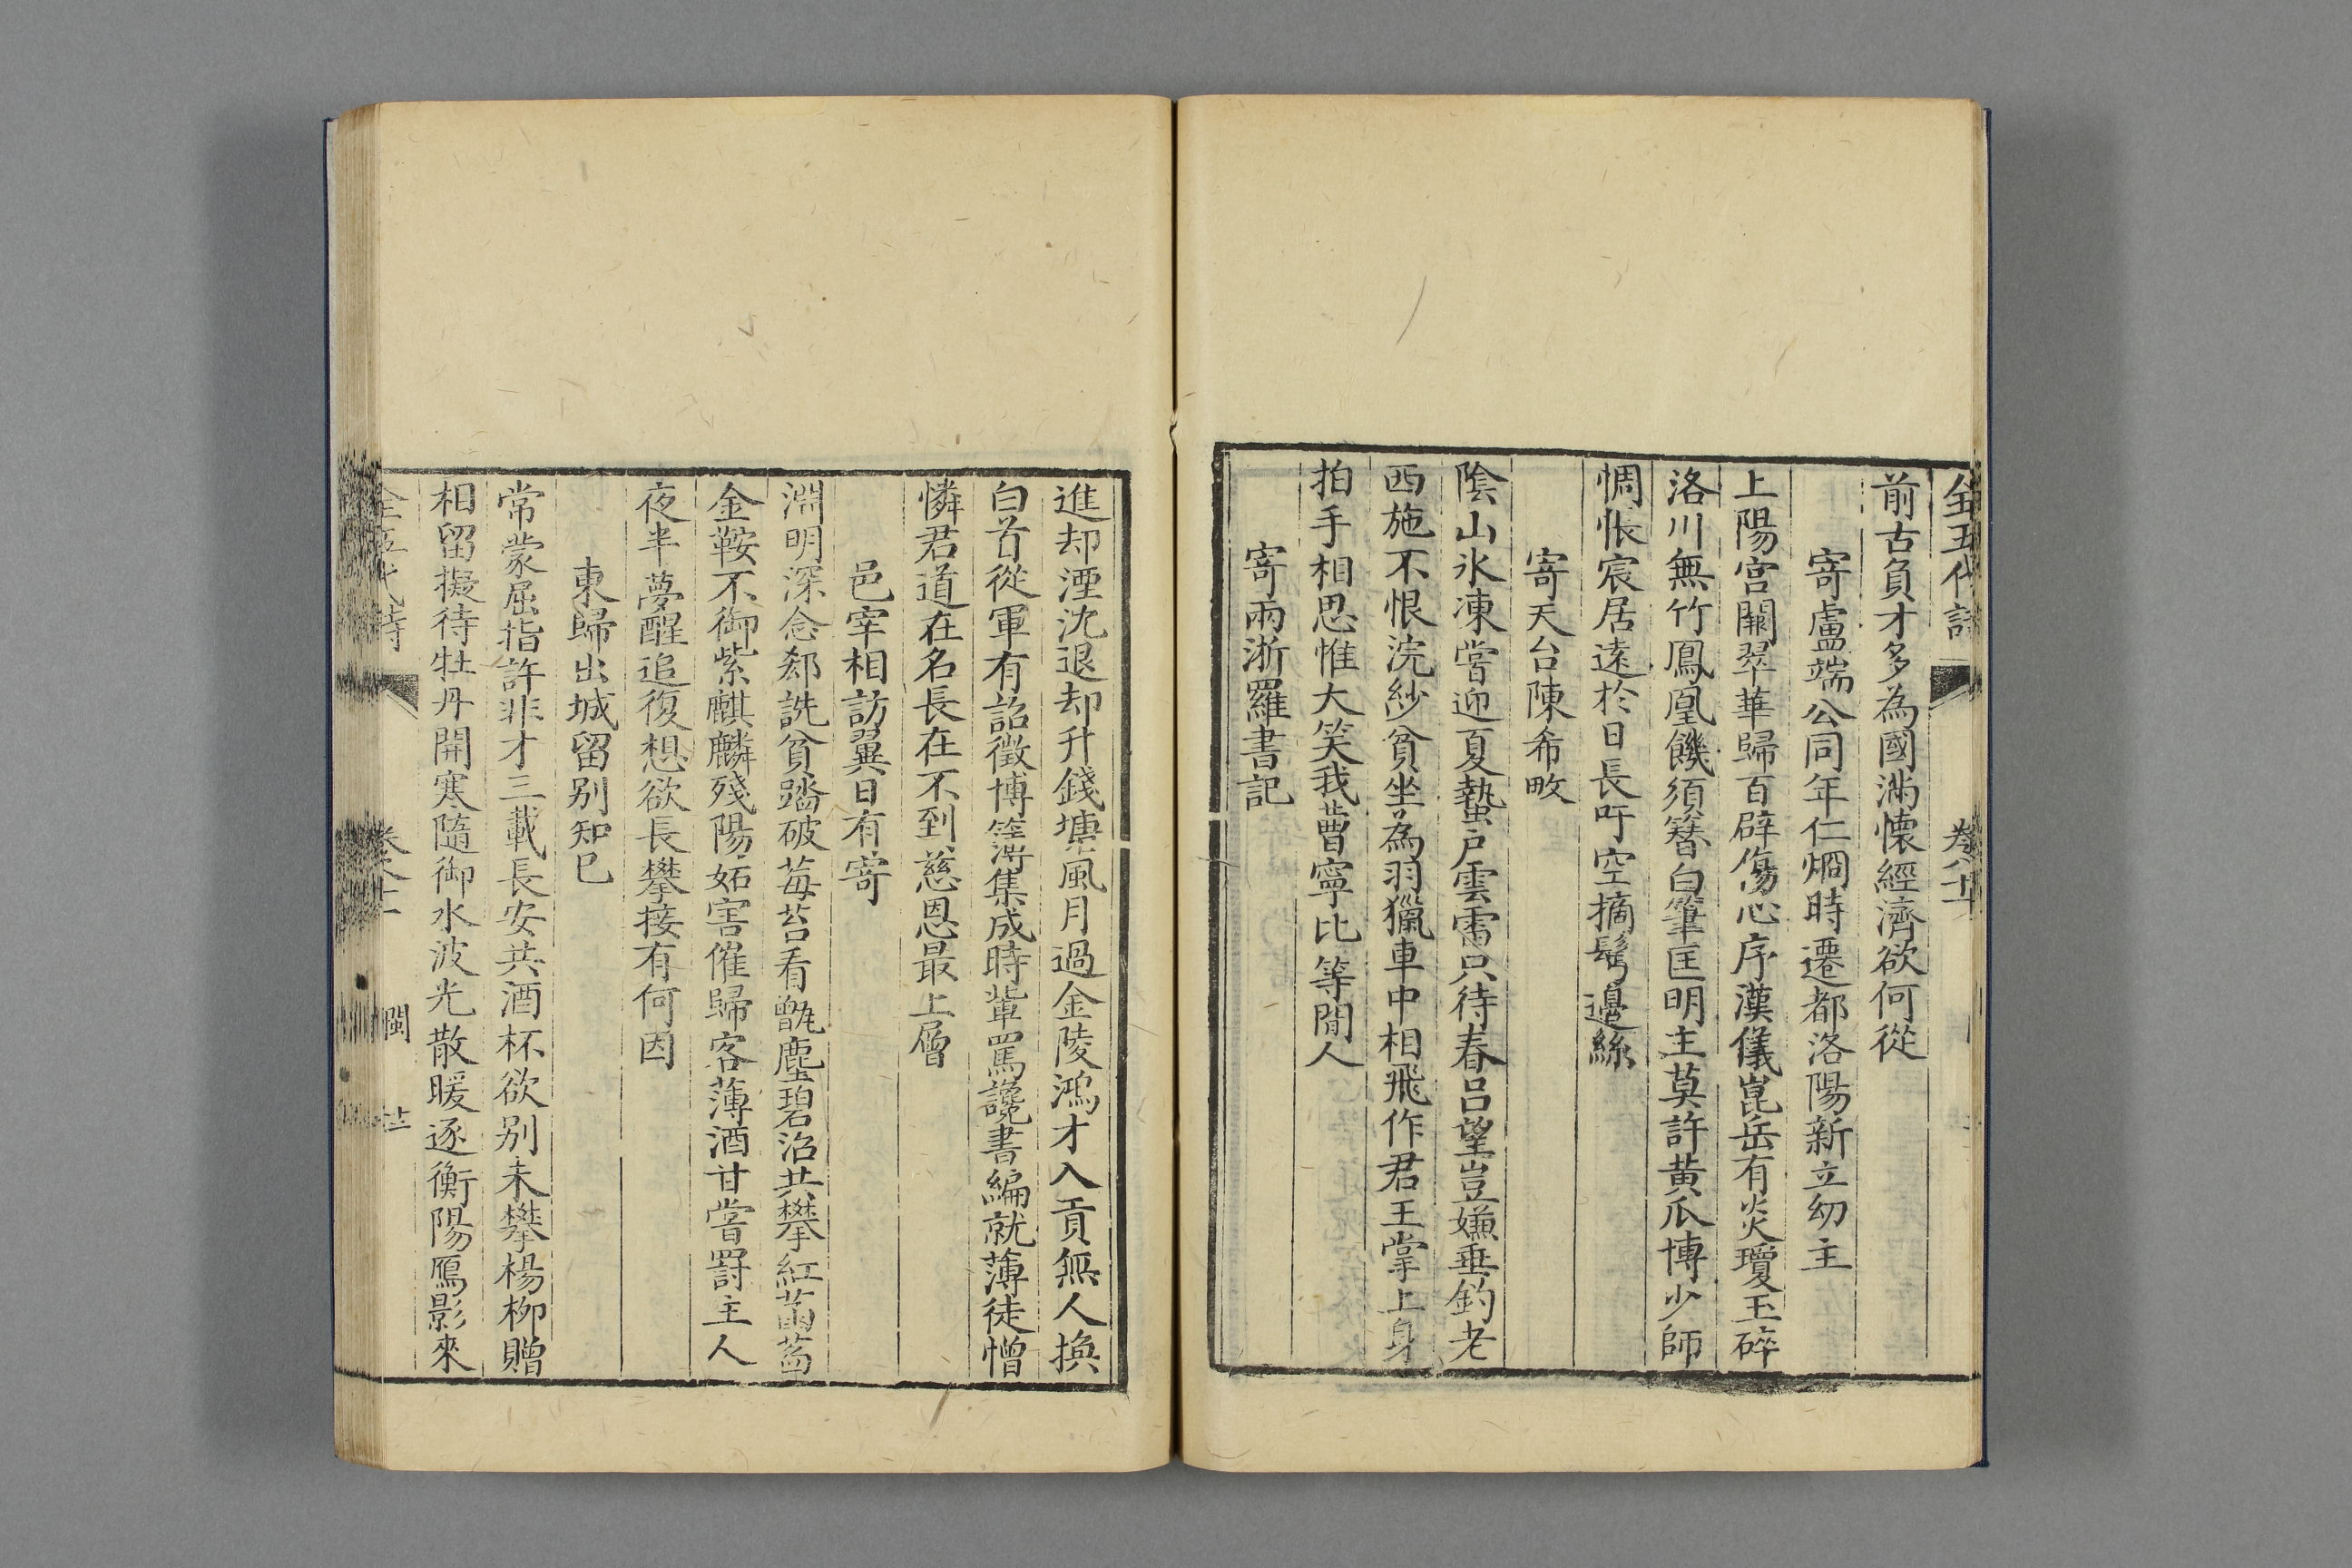 全五代詩 卷八十一
前古負才多為國滿懷經濟欲何從
寄盧端公同年仁烱時遷都洛陽新立幼主
上陽宮闕翠華歸百辟傷心序漢儀崑岳有炎瓊玉碎
洛川無竹鳳凰饑須簪白筆匡明主莫許黃瓜博少師
惆悵宸居遠於日長吁空摘鬢邊絲
寄天台陳希畋
陰山氷凍嘗迎夏蟄戶雲雷只待春呂望豈嫌垂釣老
西施不恨浣紗貧坐為羽獵車中相飛作君王掌上身
拍手相思惟大笑我曹寧比等閒人
寄兩浙羅書記
進却湮沈退却升錢塘風月過金陵鴻才入貢無人換
白首從軍有詔徵博簿集成時輩罵讒書編就薄徒憎
憐君道在名長在不到慈恩最上層
邑宰相訪翼日有寄
淵明深念郄詵貧踏破莓苔看甑塵碧沼共攀紅菡萏
金鞍不御紫麒麟殘陽妬害催歸客薄酒甘嘗罸主人
夜半夢醒追復想欲長攀接有何因
東歸出城留別知己
常蒙屈指許非才三載長安共酒杯欲别未攀楊柳贈
相留擬待牡丹開寒隨御水波光散暖逐衡陽鴈影來
全五代詩 閩 廿